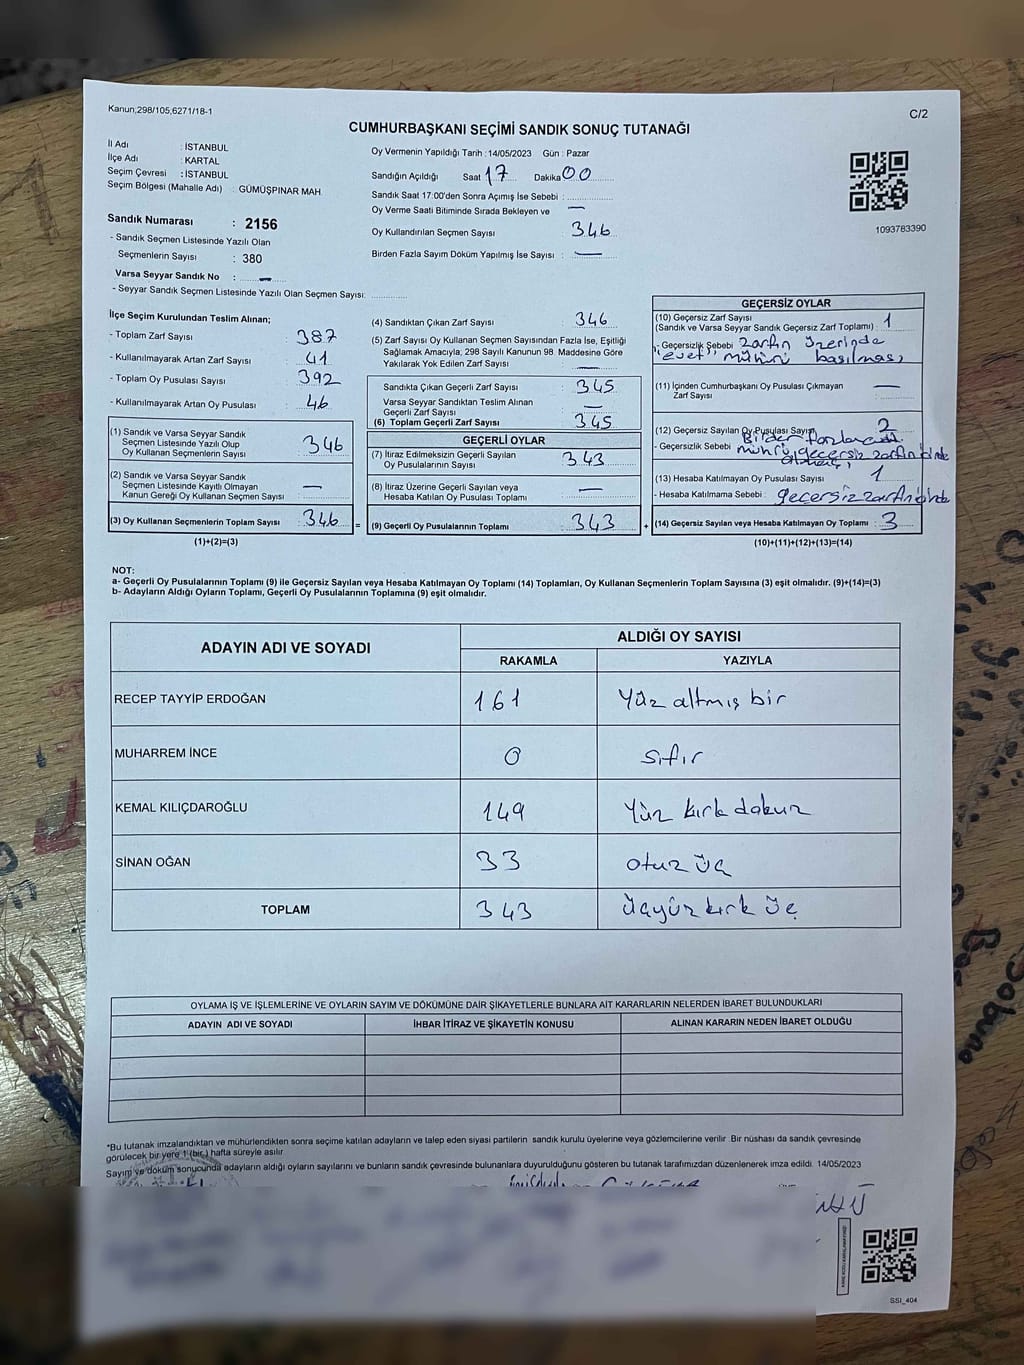 Kanun,298/105,6271/18-1
C/2
CUMHURBAŞKANI SEÇİMİ SANDIK SONUÇ TUTANAĞI
İl Adı : İSTANBUL
İlçe Adı : KARTAL
Seçim Çevresi : İSTANBUL
Seçim Bölgesi (Mahalle Adı) : GÜMÜŞPINAR MAH.
Sandık Numarası : 2156
- Sandık Seçmen Listesinde Yazılı Olan
Seçmenlerin Sayısı : 380
Varsa Seyyar Sandık No : —
- Seyyar Sandık Seçmen Listesinde Yazılı Olan Seçmen Sayısı:
Oy Vermenin Yapıldığı Tarih :14/05/2023 Gün : Pazar
Sandığın Açıldığı Saat 17 Dakika 00
Sandık Saat 17:00'den Sonra Açımış İse Sebebi :
Oy Verme Saati Bitiminde Sırada Bekleyen ve —
Oy Kullandırılan Seçmen Sayısı 346
Birden Fazla Sayım Döküm Yapılmış İse Sayısı : —
1093783390
İlçe Seçim Kurulundan Teslim Alınan;
- Toplam Zarf Sayısı 387
- Kullanılmayarak Artan Zarf Sayısı : 41
- Toplam Oy Pusulası Sayısı : 392
- Kullanılmayarak Artan Oy Pusulası : 46
(1) Sandık ve Varsa Seyyar Sandık
Seçmen Listesinde Yazılı Olup
Oy Kullanan Seçmenlerin Sayısı : 346
(2) Sandık ve Varsa Seyyar Sandık
Seçmen Listesinde Kayıtlı Olmayan
Kanun Gereği Oy Kullanan Seçmen Sayısı : —
(3) Oy Kullanan Seçmenlerin Toplam Sayısı : 346 =
(1)+(2)=(3)
(4) Sandıktan Çıkan Zarf Sayısı : 346
(5) Zarf Sayısı Oy Kullanan Seçmen Sayısından Fazla İse, Eşitliği
Sağlamak Amacıyla, 298 Sayılı Kanunun 98. Maddesine Göre
Yakılarak Yok Edilen Zarf Sayısı : —
Sandıkta Çıkan Geçerli Zarf Sayısı : 345
Varsa Seyyar Sandıktan Teslim Alınan
Geçerli Zarf Sayısı : —
(6) Toplam Geçerli Zarf Sayısı : 345
GEÇERLİ OYLAR
(7) İtiraz Edilmeksizin Geçerli Sayılan
Oy Pusulalarının Sayısı : 343
(8) İtiraz Üzerine Geçerli Sayılan veya
Hesaba Katılan Oy Pusulası Toplamı : —
(9) Geçerli Oy Pusulalarının Toplamı : 343 +
GEÇERSİZ OYLAR
(10) Geçersiz Zarf Sayısı
(Sandık ve Varsa Seyyar Sandık Geçersiz Zarf Toplamı) : 1
- Geçersizlik Sebebi : zarfın üzerinde
"evet" mührü basılması
(11) İçinden Cumhurbaşkanı Oy Pusulası Çıkmayan
Zarf Sayısı : —
(12) Geçersiz Sayılan Oy Pusulası Sayısı 2
- Geçersizlik Sebebi
mührü, geçersiz zarfın içinde
(13) Hesaba Katılmayan Oy Pusulası Sayısı : 1
- Hesaba Katılmama Sebebi : geçersiz zarfın içinde
(14) Geçersiz Sayılan veya Hesaba Katılmayan Oy Toplamı : 3
(10)+(11)+(12)+(13)=(14)
NOT:
a- Geçerli Oy Pusulalarının Toplamı (9) ile Geçersiz Sayılan veya Hesaba Katılmayan Oy Toplamı (14) Toplamları, Oy Kullanan Seçmenlerin Toplam Sayısına (3) eşit olmalıdır. (9)+(14)=(3)
b- Adayların Aldığı Oyların Toplamı, Geçerli Oy Pusulalarının Toplamına (9) eşit olmalıdır.
ADAYIN ADI VE SOYADI
ALDIĞI OY SAYISI
RAKAMLA YAZIYLA
RECEP TAYYİP ERDOĞAN 161 Yüz altmış bir
MUHARREM İNCE 0 sıfır
KEMAL KILIÇDAROĞLU 149 Yüz kırk dokuz
SİNAN OĞAN 33 otuz üç
TOPLAM 343 üçyüz kırk üç
OYLAMA İŞ VE İŞLEMLERİNE VE OYLARIN SAYIM VE DÖKÜMÜNE DAİR ŞİKAYETLERLE BUNLARA AİT KARARLARIN NELERDEN İBARET BULUNDUKLARI
ADAYIN ADI VE SOYADI İHBAR İTİRAZ VE ŞİKAYETİN KONUSU ALINAN KARARIN NEDEN İBARET OLDUĞU
*Bu tutanak imzalandıktan ve mühürlendikten sonra seçime katılan adayların ve talep eden siyasi partilerin sandık kurulu üyelerine veya gözlemcilerine verilir .Bir nüshası da sandık çevresinde
görülecek bir yere 1 (bir ) hafta süreyle asılır
Sayım ve döküm sonucunda adayların aldığı oyların sayılarını ve bunların sandık çevresinde bulunanlara duyurulduğunu gösteren bu tutanak tarafımızdan düzenlenerek imza edildi. 14/05/2023
SSI_404